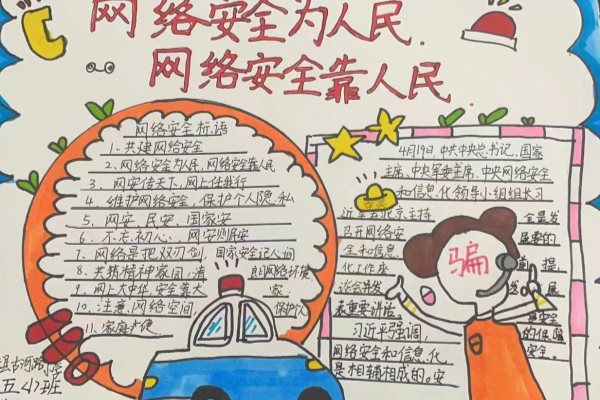 网络安全为人民.
网络安全靠人民
网络安全标语
1、共建网络安全
2、网络安全为民,网络安全靠民
3、网安传天下,网上任我行
4、维护网络安全,保护个人隐私
5、网安,民安,国家安
6、不忘初心,网安则民安
7、网络是把双刃剑,国家安全记心间
8、共精神家园,清朗网络环境
9、网上大中华,安全靠大家
10、注意网络空间 保护
11、家庭
4月19日,中共中央总书记、国家
主席、中央军委主席、中央网络安全
和信息化领导小组组长习
近 主持
召开网络安
全和信息
化工作座
谈会并发
表重要讲话。
习近平强调,
网络安全和信息化
是相辅相成的。安
全是发
展的
前提
发展
是安全
的保障
安全。
骗
五4班